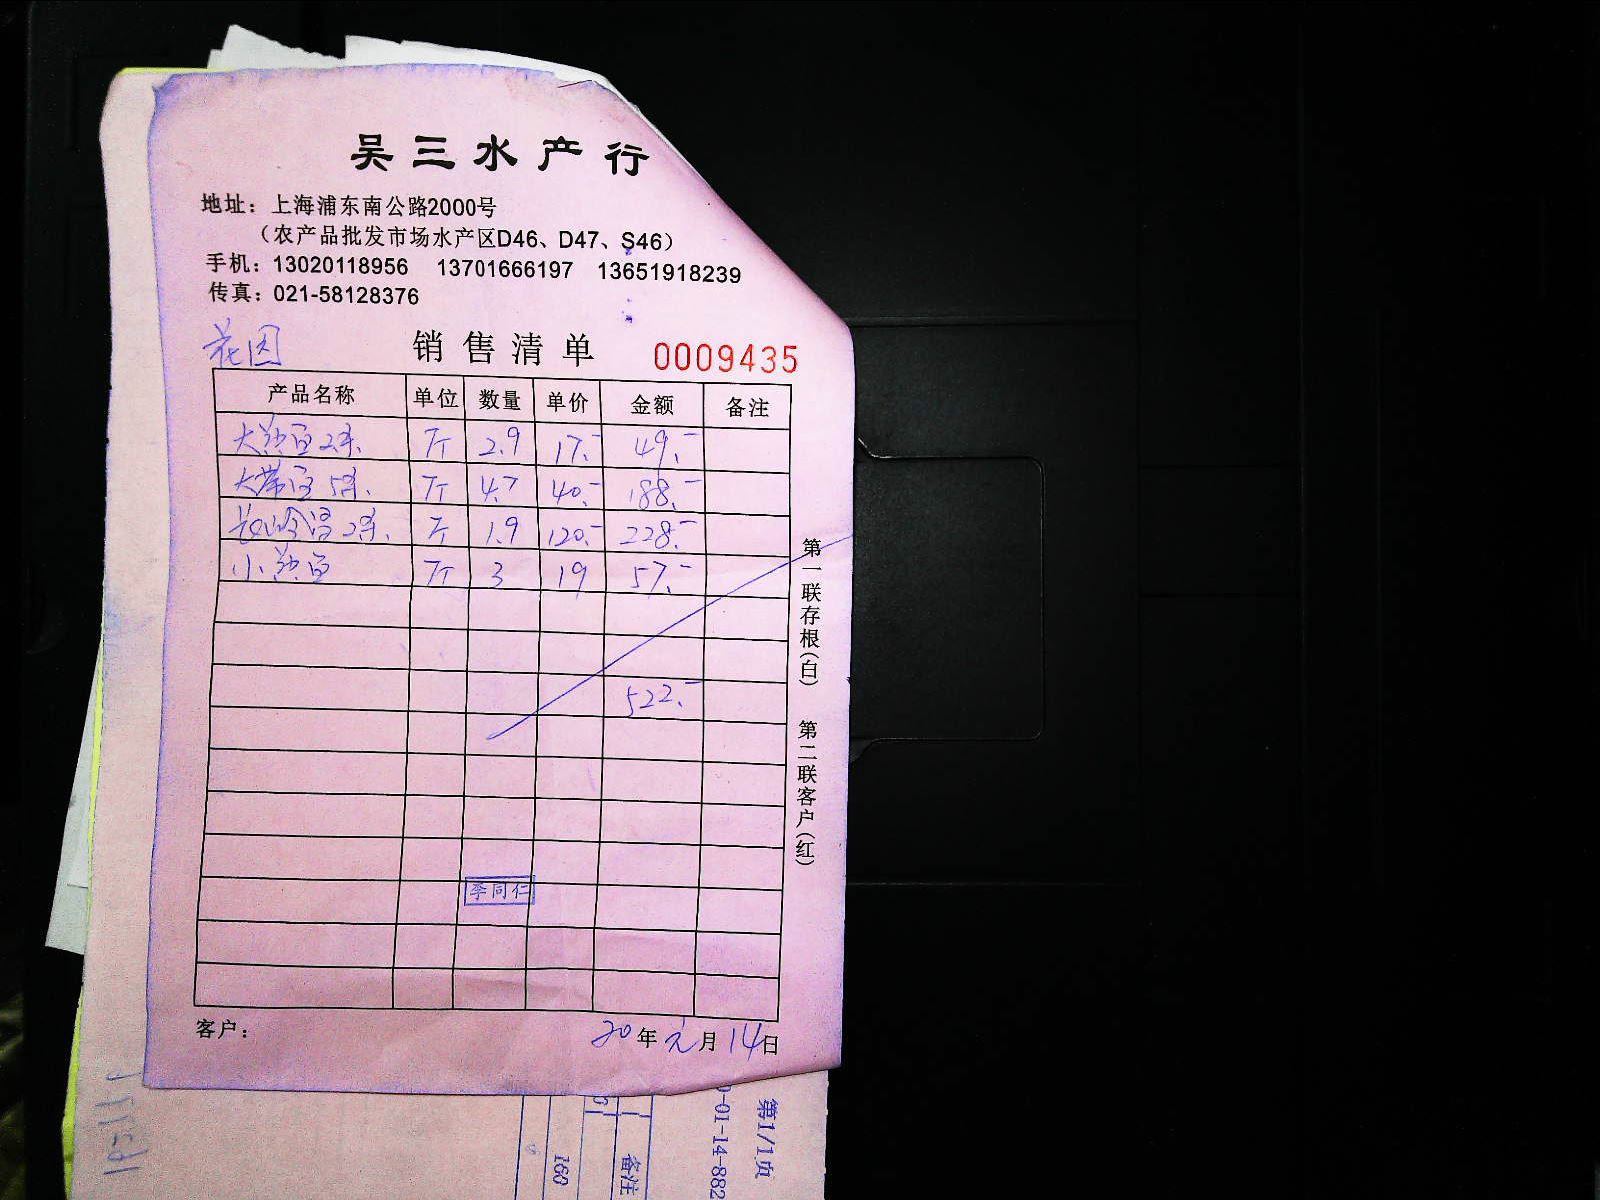 吴三水产行
地址：上海浦东南公路2000号
（农产品批发市场水产区D46、D47、S46）
手机：13020118956 13701666197 13651918239
传真：021-58128376
花园
销售清单 0009435
产品名称 单位 数量 单价 金额 备注
大 鱼2条 斤 2.9 17.- 49.-
大带鱼5条 斤 4.7 40.- 188.-
2条 斤 1.9 120.- 228.-
小 鱼 斤 3 19 57.-
522.-
李同仁
客户： 20年元月14日
第一联存根（白） 第二联客户（红）
备注
160
0-01-14-882
第1/1页